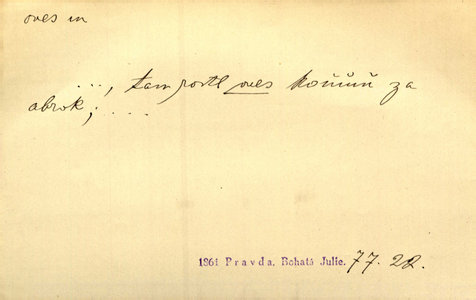 oves m
..., tam rostl oves koňům za
obrok; ....
1861 Pravda. Bohatá Julie. 77. 22.